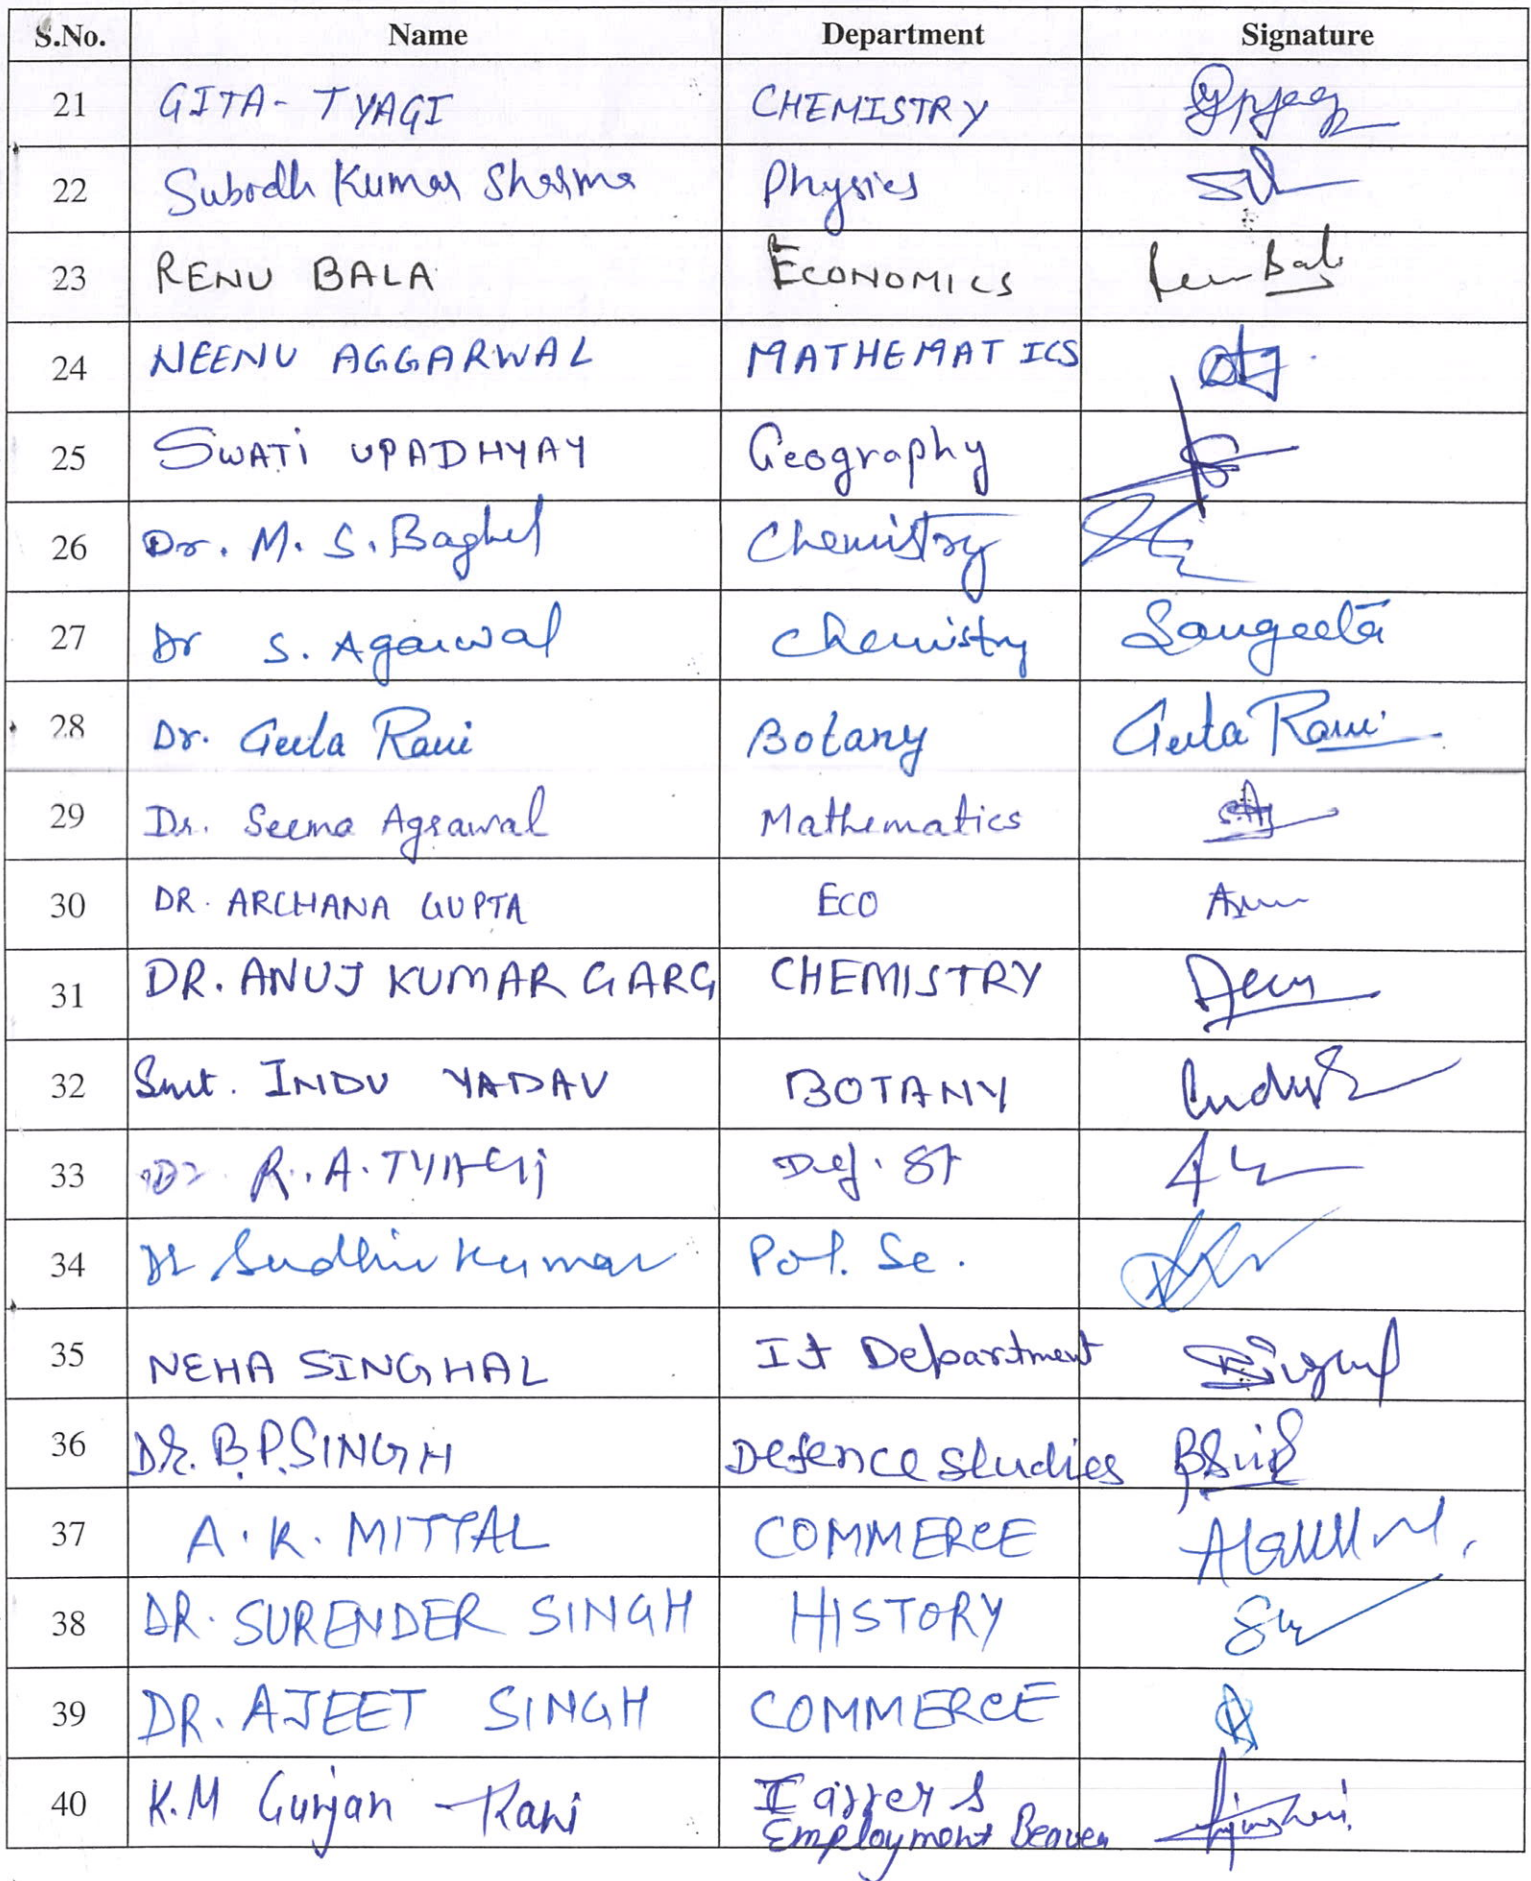 S.No. Name Department Signature
21 GITA- TYAGI CHEMISTRY
22 Subodh Kumar Sharma Physics
23 RENU BALA ECONOMICS Renu Bala
24 NEENU AGGARWAL MATHEMATICS
25 SWATI UPADHYAY Geography
26 Dr. M. S. Baghel Chemistry
27 Dr S. Agarwal Chemistry Sangeeta
28 Dr. Geeta Rani Botany Geeta Rani
29 Dr. Seema Agrawal Mathematics
30 DR. ARCHANA GUPTA ECO
31 DR. ANUJ KUMAR GARG CHEMISTRY
32 Smt. INDU YADAV BOTANY
33 Dr R. A. TYAGI Def. St
34 Dr Sudhir Kumar Pol. Sc.
35 NEHA SINGHAL It Department
36 Dr. B.P. SINGH Defence studies
37 A. K. MITTAL COMMERCE
38 DR. SURENDER SINGH HISTORY
39 DR. AJEET SINGH COMMERCE
40 K.M Gunjan Rani
Employment